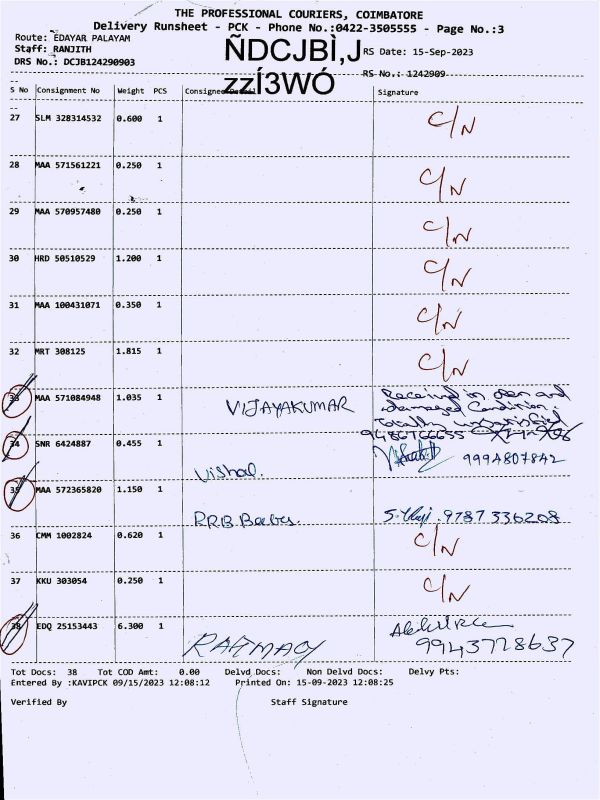 THE PROFESSIONAL COURIERS, COIMBATORE
Delivery Runsheet - PCK - Phone No.:0422-3505555 - Page No.:3
Route: EDAYAR PALAYAM
Staff: RANJITH
ÑDCJBÌ,J
RS Date: 15-Sep-2023
DRS No.: DCJB124290903
zzÍ3WÓ
RS No.: 1242909
S No Consignment No Weight PCS Consignee Signature
27 SLM 328314532 0.600 1 C/N
28 MAA 571561221 0.250 1 C/N
29 MAA 570957480 0.250 1 C/N
30 HRD 50510529 1.200 1 C/N
31 MAA 100431071 0.350 1 C/N
32 MRT 308125 1.815 1 C/N
33 MAA 571084948 1.035 1 VIJAYAKUMAR Received in open and
damaged Condition.
Totally unsatisfied
9486766655
34 SNR 6424887 0.455 1 Vishal. 9994807842
35 MAA 572365820 1.150 1 9787336208
36 CMM 1002824 0.620 1 C/N
37 KKU 303054 0.250 1 C/N
38 EDQ 25153443 6.300 1
9943728637
Tot Docs: 38 Tot COD Amt: 0.00 Delvd Docs: Non Delvd Docs: Delvy Pts:
Entered By :KAVIPCK 09/15/2023 12:08:12 Printed On: 15-09-2023 12:08:25
Verified By Staff Signature